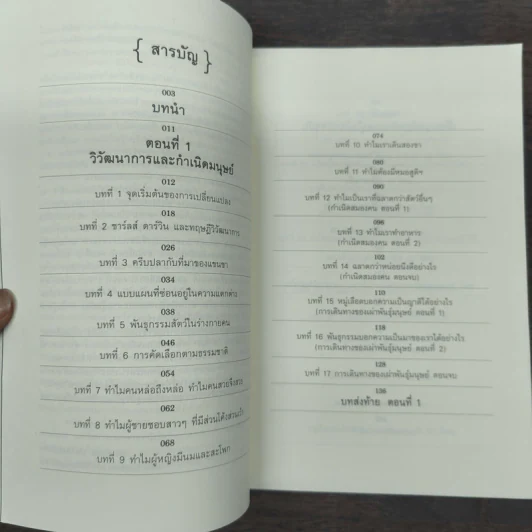 { สารบัญ }
003
บทนำ
011
ตอนที่ 1
วิวัฒนาการและกำเนิดมนุษย์
012
บทที่ 1 จุดเริ่มต้นของการเปลี่ยนแปลง
018
บทที่ 2 ชาร์ลส์ ดาร์วิน และทฤษฎีวิวัฒนาการ
026
บทที่ 3 ครีบปลากับที่มาของแขนขา
034
บทที่ 4 แบบแผนที่ซ่อนอยู่ในความแตกต่าง
038
บทที่ 5 พันธุกรรมสัตว์ในร่างกายคน
046
บทที่ 6 การคัดเลือกตามธรรมชาติ
054
บทที่ 7 ทำไมคนหล่อถึงหล่อ ทำไมคนสวยจึงสวย
062
บทที่ 8 ทำไมผู้ชายชอบสาวๆ ที่มีส่วนโค้งส่วนเว้า
068
บทที่ 9 ทำไมผู้หญิงมีนมและสะโพก
074
บทที่ 10 ทำไมเราเดินสองขา
080
บทที่ 11 ทำไมต้องมีหมอสูติฯ
090
บทที่ 12 ทำไมเราเป็นเราที่ฉลาดกว่าสัตว์อื่นๆ
(กำเนิดสมองคน ตอนที่ 1)
096
บทที่ 13 ทำไมเราทำอาหาร
(กำเนิดสมองคน ตอนที่ 2)
102
บทที่ 14 ฉลาดกว่าหน่อยนึงดีอย่างไร
(กำเนิดสมองคน ตอนจบ)
110
บทที่ 15 หมู่เลือดบอกความเป็นญาติได้อย่างไร
(การเดินทางของเผ่าพันธุ์มนุษย์ ตอนที่ 1)
118
บทที่ 16 พันธุกรรมบอกความเป็นมาของเราได้อย่างไร
(การเดินทางของเผ่าพันธุ์มนุษย์ ตอนที่ 2)
128
บทที่ 17 การเดินทางของเผ่าพันธุ์มนุษย์ ตอนจบ
136
บทส่งท้าย ตอนที่ 1